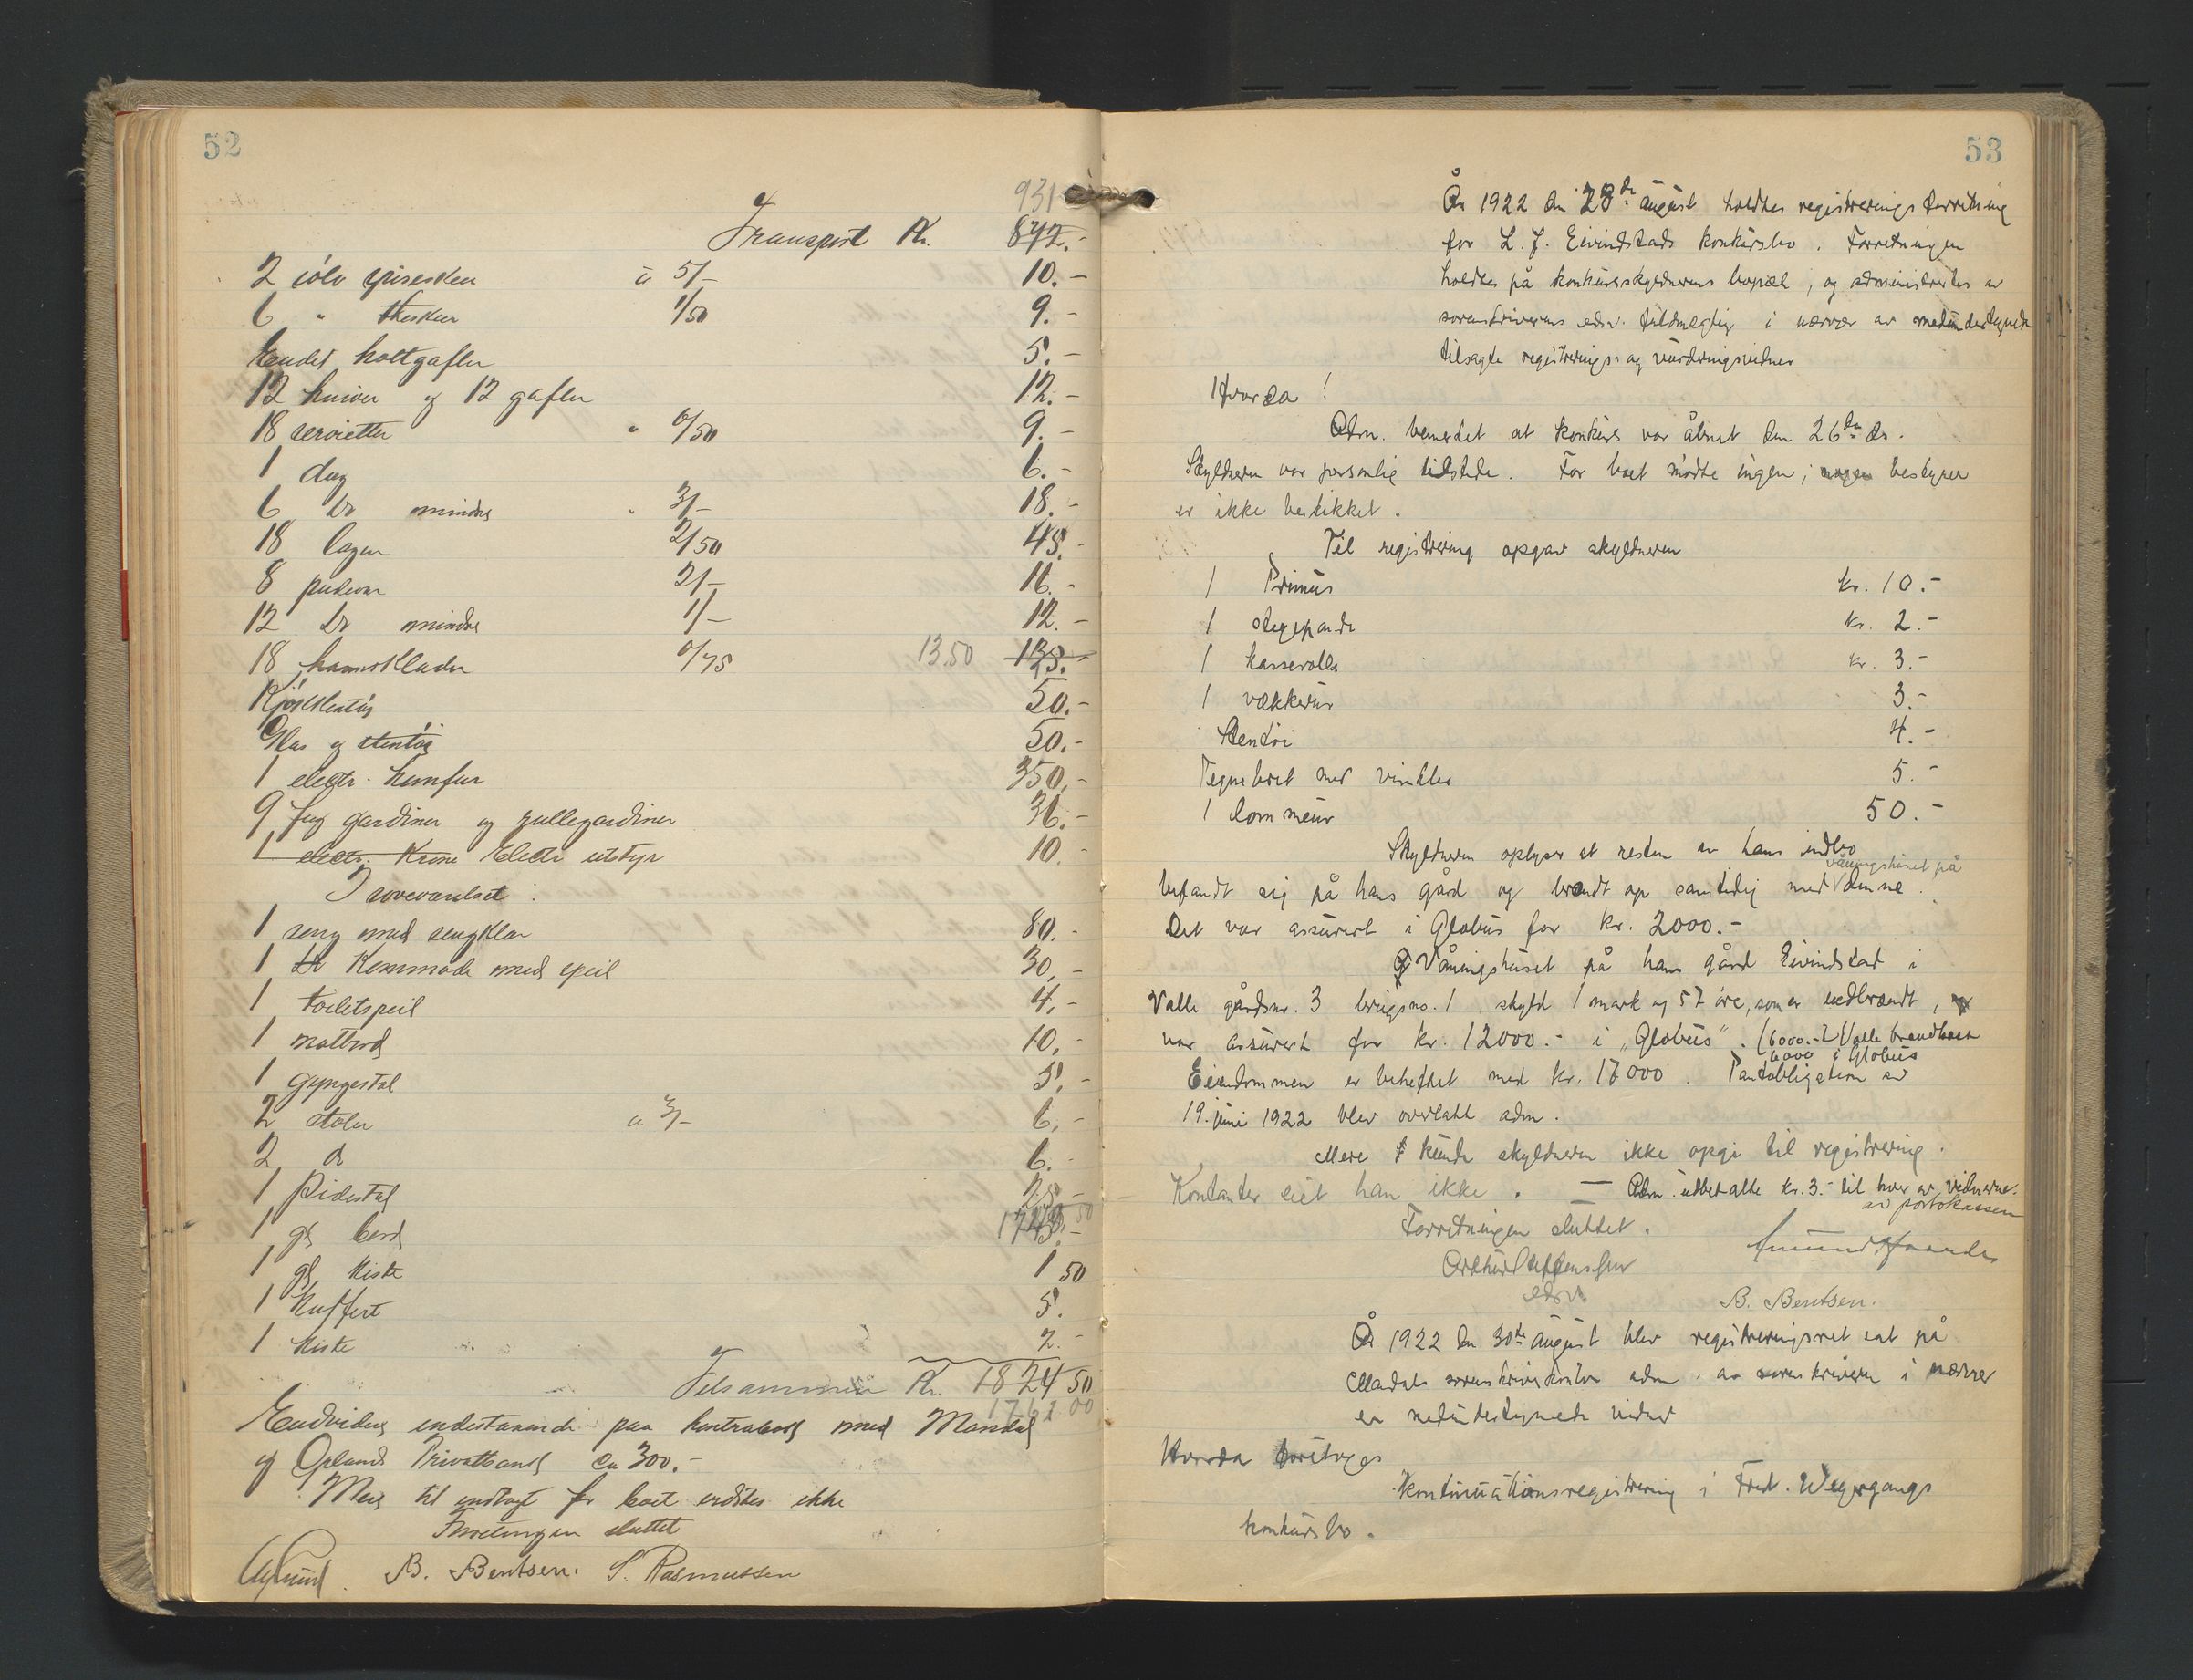 52
931
Transport Kr. 872.-
2 sölv spiseskeer à 5/- 10.-
6 " theskeer 1/50 9.-
Endel kaltgafler 5.-
12 kniver og 12 gafler 12.-
18 servietter " 0/50 9.-
1 dug 6.-
6 Do mindre " 3/- 18.-
18 lagen 2/50 45.-
8 putevar 2/- 16.-
12 Do mindre 1/- 12.-
18 haandklæder 0/75 13.50
Kjökkentöi 50.-
Glas og stentöi 50.-
1 electr. komfur 350.-
9 fag gardiner og rullegardiner 36.-
1 electr. Krone Electr utstyr 10.-
I soveværelset:
1 seng med sengklær 80.-
1 Do Kommode med speil 30.-
1 toiletspeil 4.-
1 natbord 10.-
1 Gyngestol 5.-
2 stoler à 3/- 6.-
2 do 6.-
1 Pidestal 25.-
1 gl bord
1 gl, Kiste 1 50
1 Kuffert 5.
1 Kiste 2.-
Tilsammen Kr. 1824 50
Endvidere indestaaende paa kontrabog med Mandal
og Oplands Privatbank ca 300.-
Mere til indtægt for boet vidstes ikke
Forretningen sluttet
B. Bentsen. S. Rasmussen
53
År 1922 den 28de august holdtes registreringsforretning
for L. J. Eivindstads konkursbo. Forretningen
holdtes på konkursskyldnerens bopæl, og administrertes av
sorenskriverens edsv. fuldmægtig i nærvær av medundertegnede
tilsagte registrerings- og vurderingsvidner
Hvorda!
Adm. bemerket at konkurs var åbnet den 26de ds.
Skyldneren var personlig tilstede. For boet mødte ingen; nogen bestyrer
er ikke beskikket.
Til registrering opgav skyldneren
1 Primus kr. 10.-
1 stegepande kr. 2.-
1 kasserolle kr. 3.-
1 vækkerur 3.-
Stentöi 4.-
Tegnebret med vinkler 5.-
1 lommeur 50.-
Skyldneren oplyser at resten av hans indbo
våningshuset på
befandt sig på hans gård og brændt op samtidig med denne.
Det var assurert i Globus for kr. 2000.-
Våningshuset på hans gård Eivindstad i
Valle gårdsnr. 3 brugsno. 1, skyld 1 mark og 57 öre, som er nedbrændt,
var assurert for kr. 12000.- i "Globus". (6000.- i Valle brandkasse
6000 i Globus
Eiendommen er beheftet med kr. 17000. Pantobligation av
19. juni 1922 blev overlatt adm.
Mere kunde skyldneren ikke opgi til registrering.
Kontanter eiet han ikke. — Adm. utbetalte kr. 3.- til hver av vidnerne.
av portokassen
Forretningen sluttet.
Arthur Steffensen
edsv.
B. Bentsen.
År 1922 den 30te august blev registreringsret sat på
Mandals sorenskriverkontor adm. av sorenskriveren i nærvær
av medundertegnede vidner
Hvorda foretoges
Kontinuationsregistrering i Fred. Weyergangs
konkursbo.